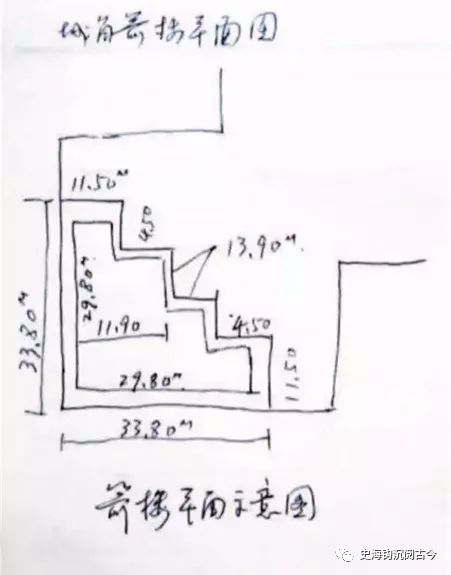 城角箭楼平面图
11.50ᴹ
4.50
13.90ᴹ
29.80ᴹ
33.80ᴹ
11.90
4.50
11.50
29.80ᴹ
33.80ᴹ
箭楼平面示意图
史海钩沉阅古今